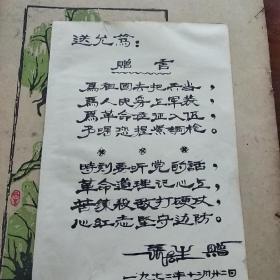 送允笃：
赠言
为祖国去把兵当，
为人民穿上军装，
为革命应征入伍，
手握钢枪
* * *
时刻要听党的话，
革命道理记心上，
苦练杀敌打硬仗，
心红志坚守边防。
赠
一九七二年十二月廿二日